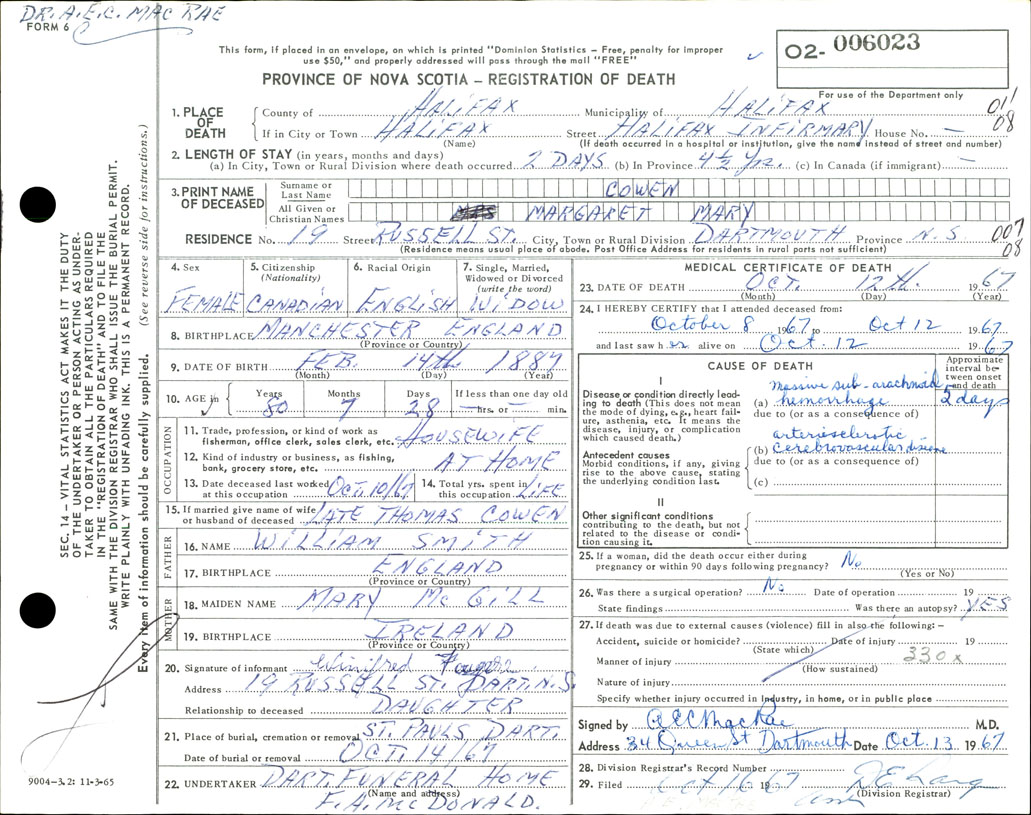 DR. A.E.C. MAC RAE
FORM 6
This form, if placed in an envelope, on which is printed "Dominion Statistics – Free, penalty for improper
use $50," and properly addressed will pass through the mail "FREE"
PROVINCE OF NOVA SCOTIA – REGISTRATION OF DEATH
02- 006023
For use of the Department only
011
08
SEC. 14 – VITAL STATISTICS ACT MAKES IT THE DUTY
OF THE UNDERTAKER OR PERSON ACTING AS UNDER-
TAKER TO OBTAIN ALL THE PARTICULARS REQUIRED
IN THE "REGISTRATION OF DEATH" AND TO FILE THE
SAME WITH THE DIVISION REGISTRAR WHO SHALL ISSUE THE BURIAL PERMIT.
WRITE PLAINLY WITH UNFADING INK. THIS IS A PERMANENT RECORD.
Every item of information should be carefully supplied. (See reverse side for instructions.)
1. PLACE OF DEATH
County of HALIFAX Municipality of HALIFAX
If in City or Town HALIFAX Street HALIFAX INFIRMARY House No. —
(Name) (If death occurred in a hospital or institution, give the name instead of street and number)
2. LENGTH OF STAY (in years, months and days)
(a) In City, Town or Rural Division where death occurred 2 DAYS (b) In Province 4½ Yrs. (c) In Canada (if immigrant) —
3. PRINT NAME OF DECEASED
Surname or Last Name COWEN
All Given or Christian Names MRS MARGARET MARY
RESIDENCE No. 19 Street RUSSELL ST. City, Town or Rural Division DARTMOUTH Province N.S.
(Residence means usual place of abode. Post Office Address for residents in rural parts not sufficient)
007
08
4. Sex FEMALE
5. Citizenship (Nationality) CANADIAN
6. Racial Origin ENGLISH
7. Single, Married, Widowed or Divorced (write the word) WIDOW
8. BIRTHPLACE MANCHESTER ENGLAND
(Province or Country)
9. DATE OF BIRTH FEB. 14th 1887
(Month) (Day) (Year)
10. AGE in Years 80 Months 7 Days 28 If less than one day old — hrs. or — min.
OCCUPATION
11. Trade, profession, or kind of work as fisherman, office clerk, sales clerk, etc. HOUSEWIFE
12. Kind of industry or business, as fishing, bank, grocery store, etc. AT HOME
13. Date deceased last worked at this occupation OCT. 10/67 14. Total yrs. spent in this occupation LIFE
15. If married give name of wife or husband of deceased LATE THOMAS COWEN
FATHER
16. NAME WILLIAM SMITH
17. BIRTHPLACE ENGLAND
(Province or Country)
MOTHER
18. MAIDEN NAME MARY McGILL
19. BIRTHPLACE IRELAND
(Province or Country)
20. Signature of informant Winifred
Address 19 RUSSELL ST. DART. N.S.
Relationship to deceased DAUGHTER
21. Place of burial, cremation or removal ST. PAULS DART.
Date of burial or removal OCT. 14/67
22. UNDERTAKER DART. FUNERAL HOME
(Name and address)
F.A. McDONALD.
9004-3.2: 11-3-65
MEDICAL CERTIFICATE OF DEATH
23. DATE OF DEATH OCT. 12th. 1967
(Month) (Day) (Year)
24. I HEREBY CERTIFY that I attended deceased from:
October 8 1967 to Oct 12 1967
and last saw her alive on Oct. 12 1967
CAUSE OF DEATH
Approximate interval between onset and death
I
Disease or condition directly leading to death (This does not mean the mode of dying, e.g., heart failure, asthenia, etc. It means the disease, injury, or complication which caused death.)
(a) massive sub-arachnoid hemorrhage 5 days
due to (or as a consequence of)
Antecedent causes
Morbid conditions, if any, giving rise to the above cause, stating the underlying condition last.
(b) arteriosclerotic cerebrovascular disease
due to (or as a consequence of)
(c)
II
Other significant conditions
contributing to the death, but not related to the disease or condition causing it.
25. If a woman, did the death occur either during pregnancy or within 90 days following pregnancy? No
(Yes or No)
26. Was there a surgical operation? No Date of operation 19
State findings Was there an autopsy? YES
27. If death was due to external causes (violence) fill in also the following: –
Accident, suicide or homicide? Date of injury 19
(State which)
Manner of injury 330 x
(How sustained)
Nature of injury
Specify whether injury occurred in industry, in home, or in public place
Signed by A E C MacRae M.D.
Address 34 Queen St Dartmouth Date Oct. 13 1967
28. Division Registrar's Record Number
29. Filed Oct 16 1967
(Division Registrar)